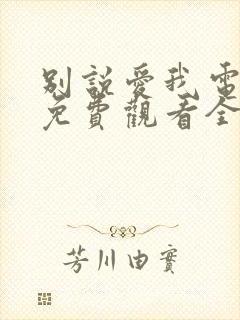 別說愛我電
免費觀看全
芳川由實